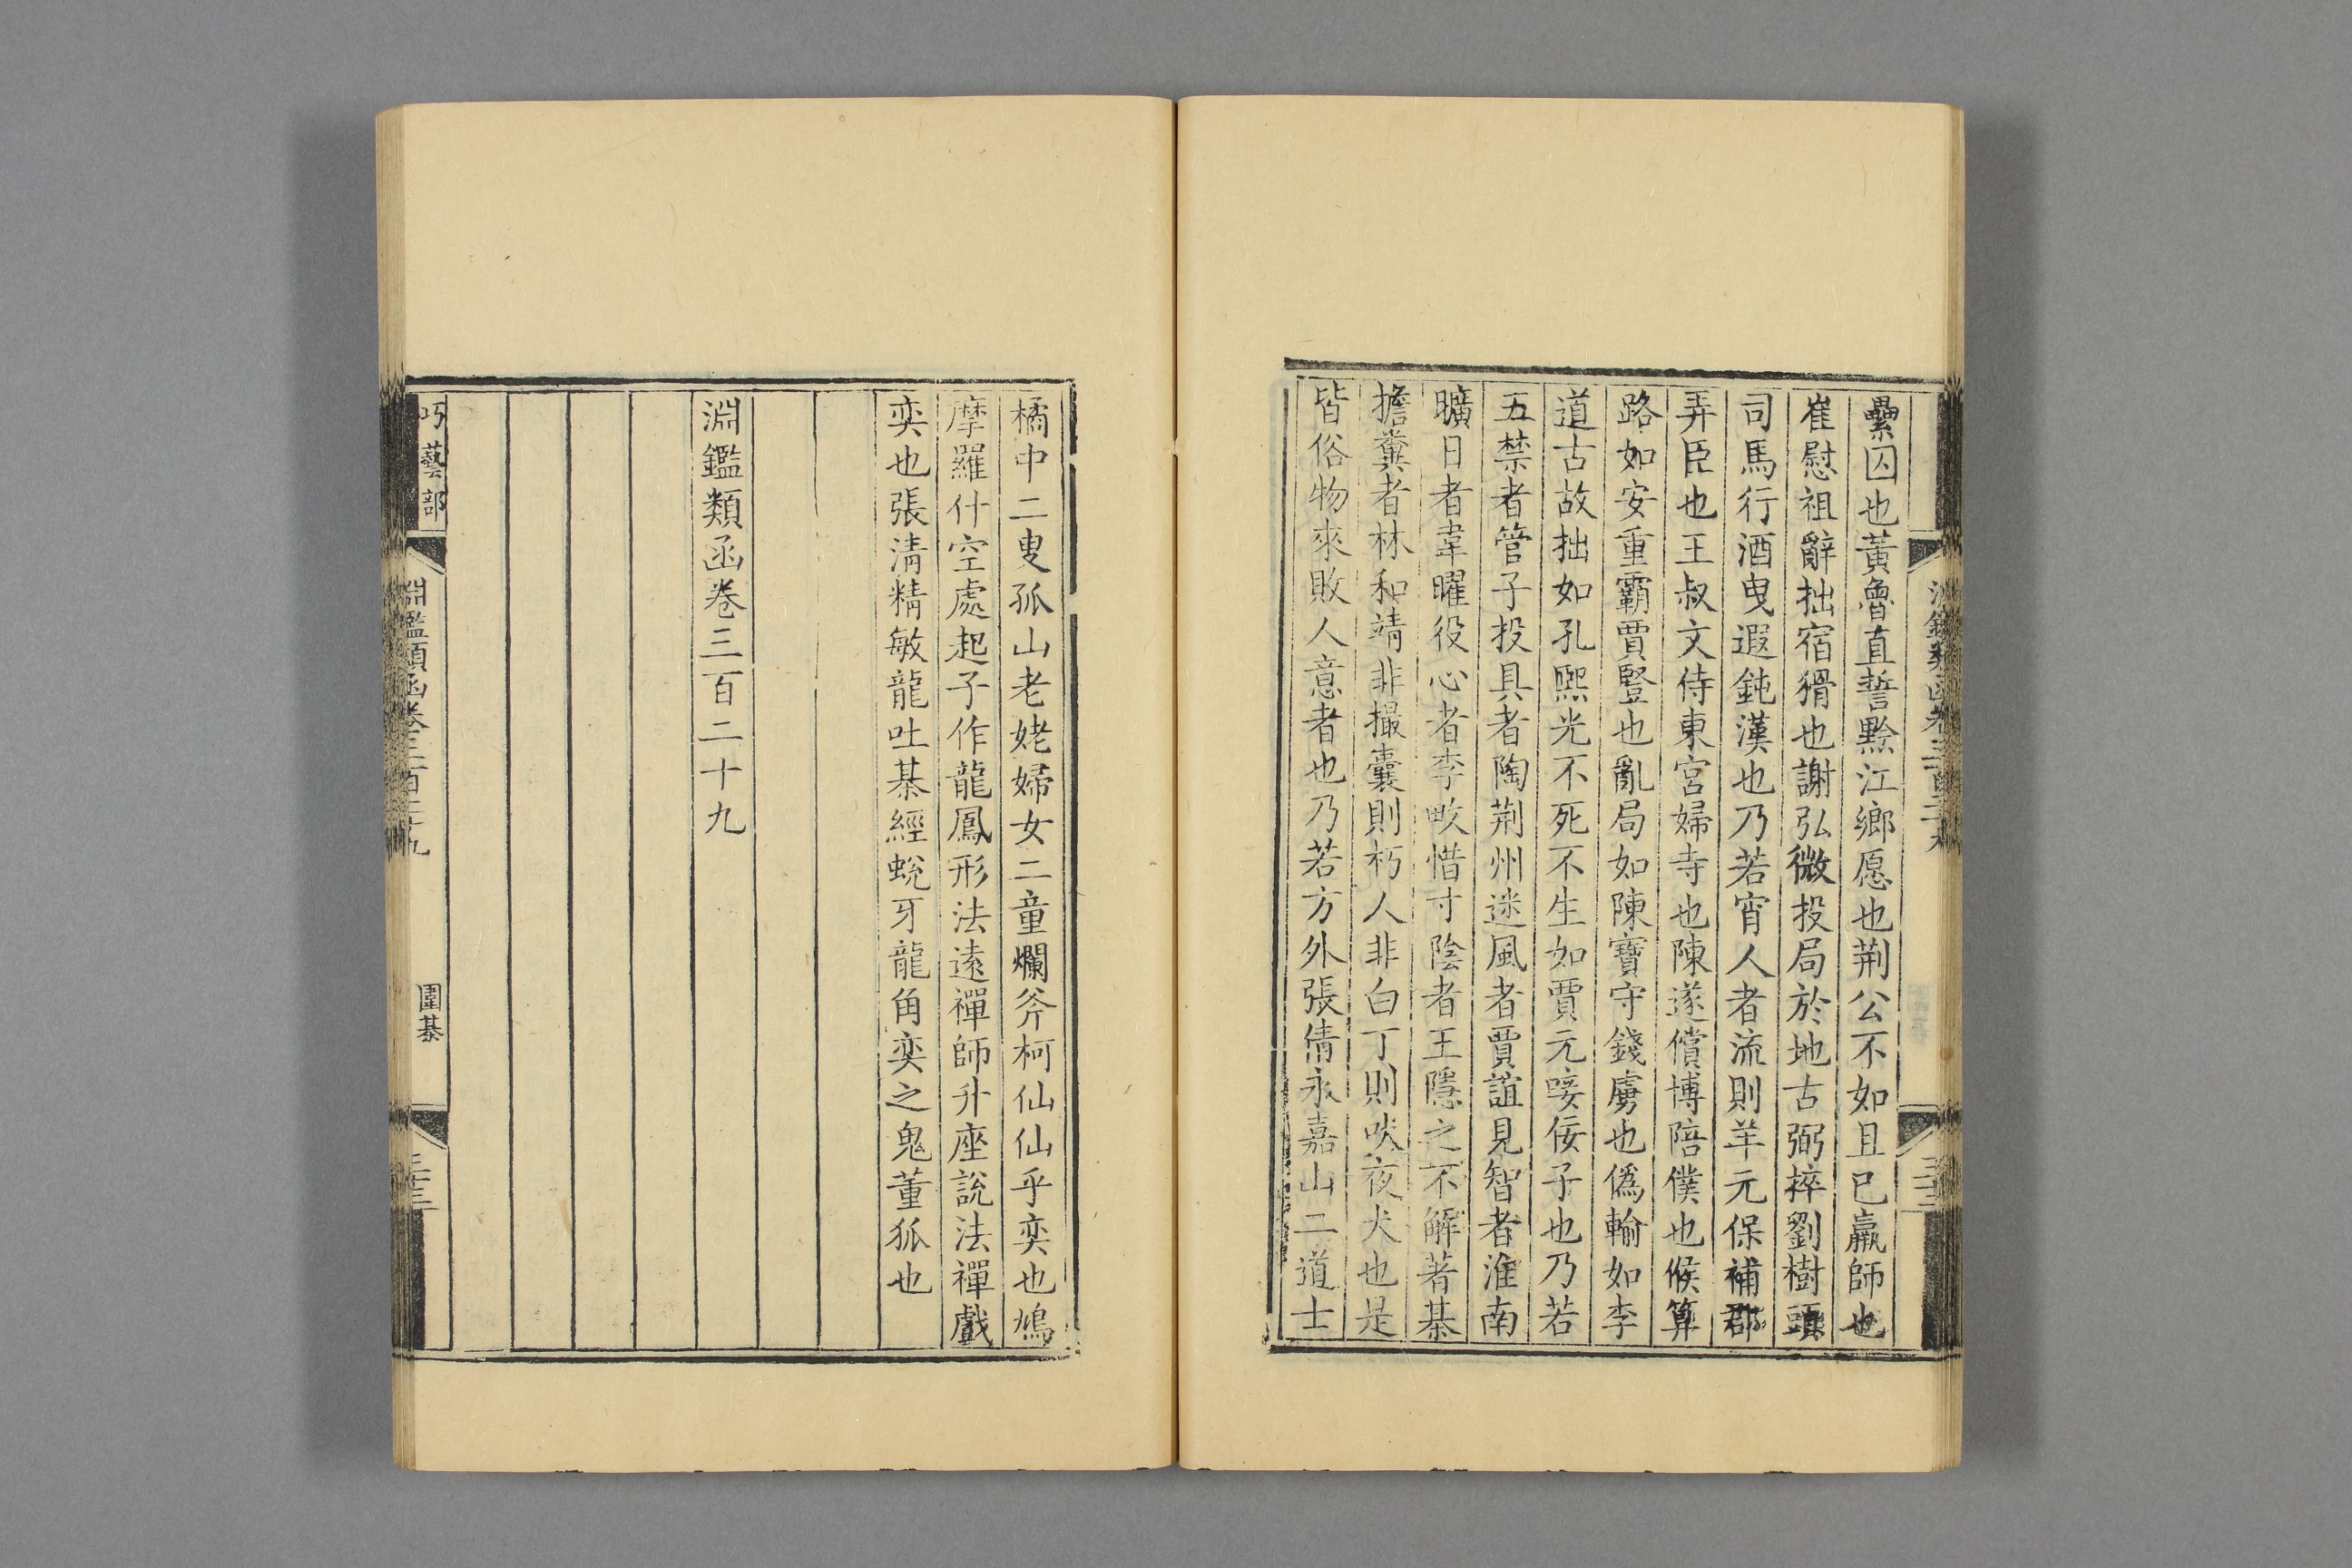 纍囚也黃魯直誓黥江鄉愿也荆公不如且已羸師也
崔慰祖辭拙宿猾也謝弘微投局於地古弼捽劉樹頭
司馬行酒曳遐鈍漢也乃若宵人者流則羊元保補郡
弄臣也王叔文侍東宮婦寺也陳遂償博陪僕也候算
路如安重霸賈豎也亂局如陳寶守錢虜也僞輸如李
道古故拙如孔熙光不死不生如賈元唛佞子也乃若
五禁者管子投具者陶荆州迷風者賈誼見智者淮南
曠日者韋曜役心者李畋惜寸陰者王隱之不解著棊
擔糞者林和靖非撮囊則朽人非白丁則吠夜犬也是
皆俗物來敗人意者也乃若方外張倩永嘉山二道士
橘中二叟孤山老姥婦女二童爛斧柯仙仙乎奕也鳩
摩羅什空處起子作龍鳳形法遠禪師升座說法禪戲
奕也張淸精敏龍吐棊經蛻牙龍角奕之鬼董狐也
淵鑑類函卷三百二十九
巧藝部
淵鑑類函卷三百二十九
圍棊
三十三